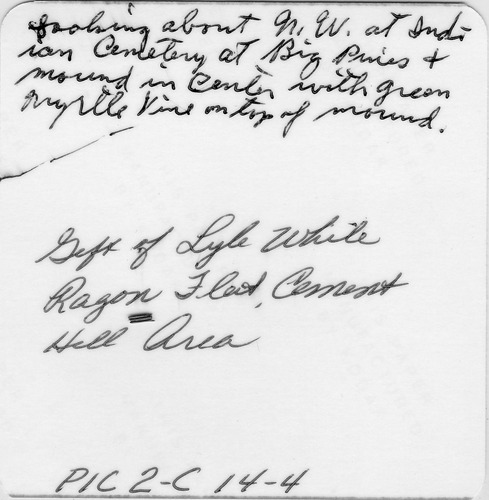 Looking about N.W. at Indi
ian Cemetery at Big Pines +
mound in center with green
myrtle Vine on top of mound.
Gift of Lyle White
Ragon Flat, Cement
Hill Area
PIC 2-C 14-4